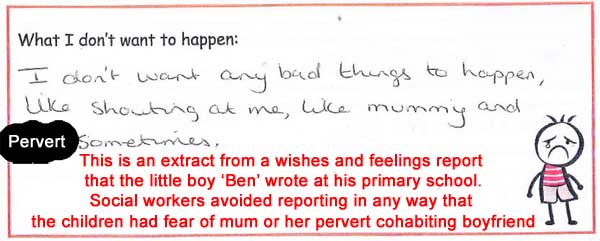 What I don't want to happen:
I don't want any bad things to happen,
like shouting at me, like mummy and
Pervert sometimes.
This is an extract from a wishes and feelings report
that the little boy ‘Ben’ wrote at his primary school.
Social workers avoided reporting in any way that
the children had fear of mum or her pervert cohabiting boyfriend